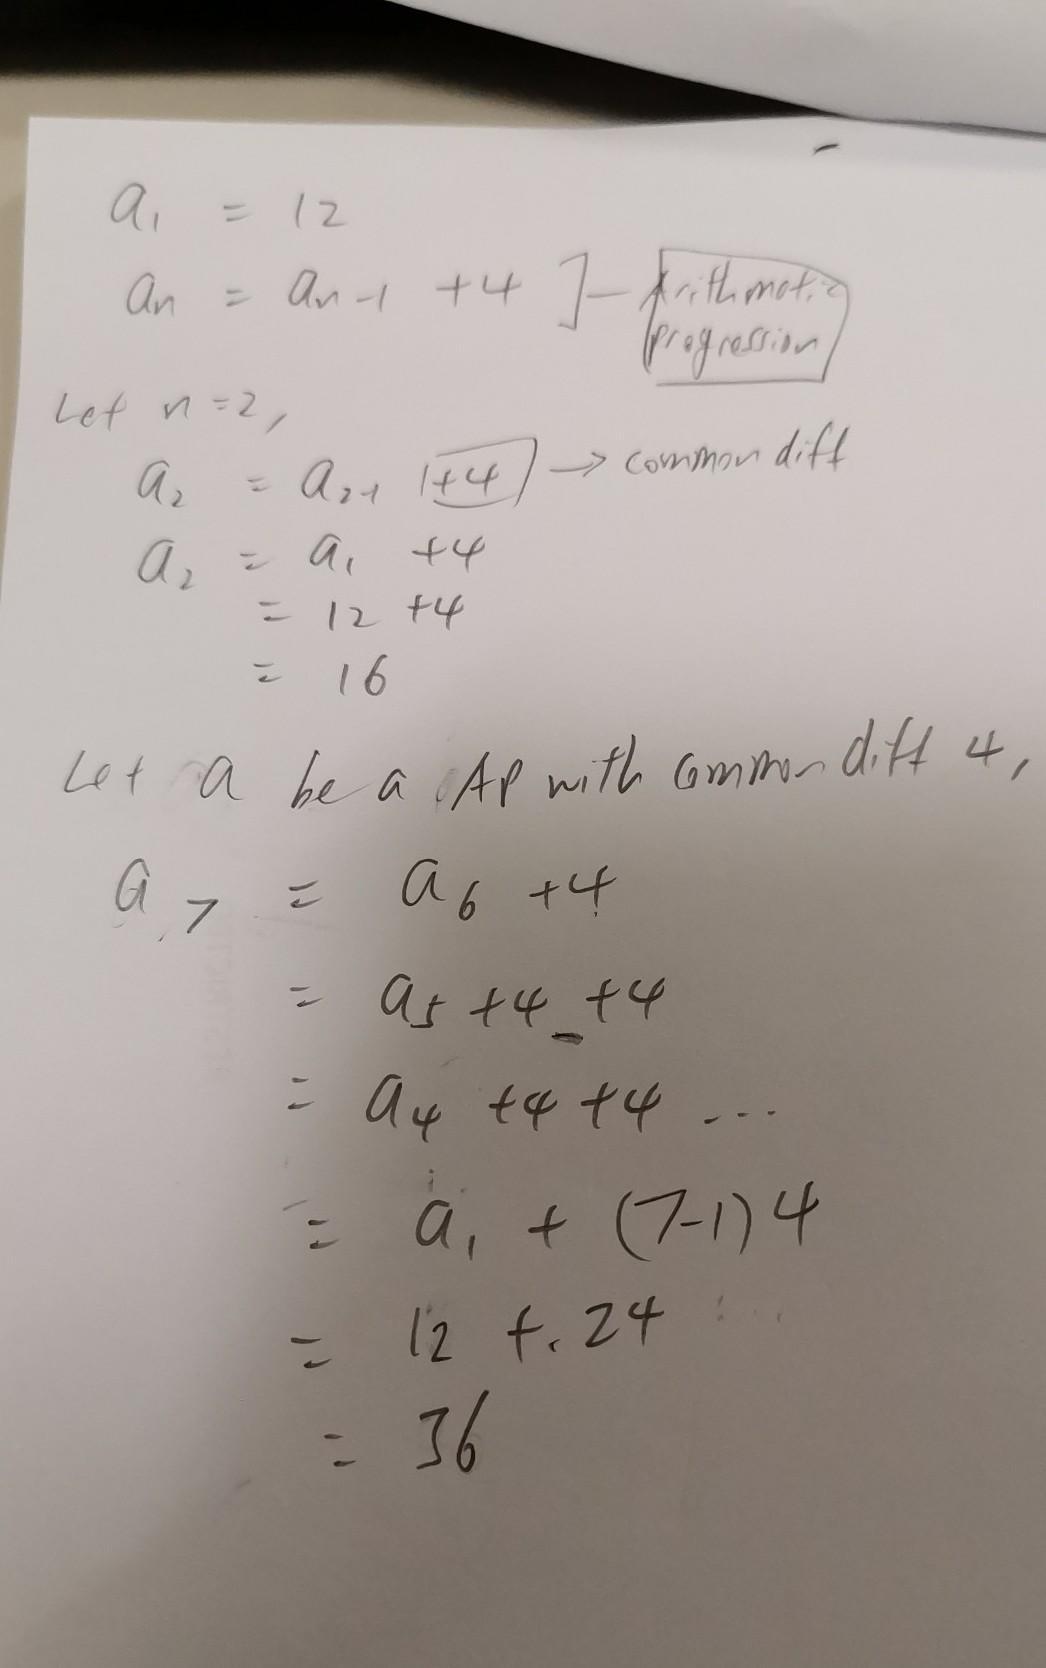 a₁ = 12
aₙ = aₙ₋₁ + 4 ] — Arithmatic
progression
Let n = 2,
a₂ = a₂₋₁ +4 → common diff
a₂ = a₁ +4
= 12 +4
= 16
Let a be a AP with common diff 4,
a₇ = a₆ +4
= a₅ +4 +4
= a₄ +4 +4 ...
= a₁ + (7-1)4
= 12 + 24
= 36